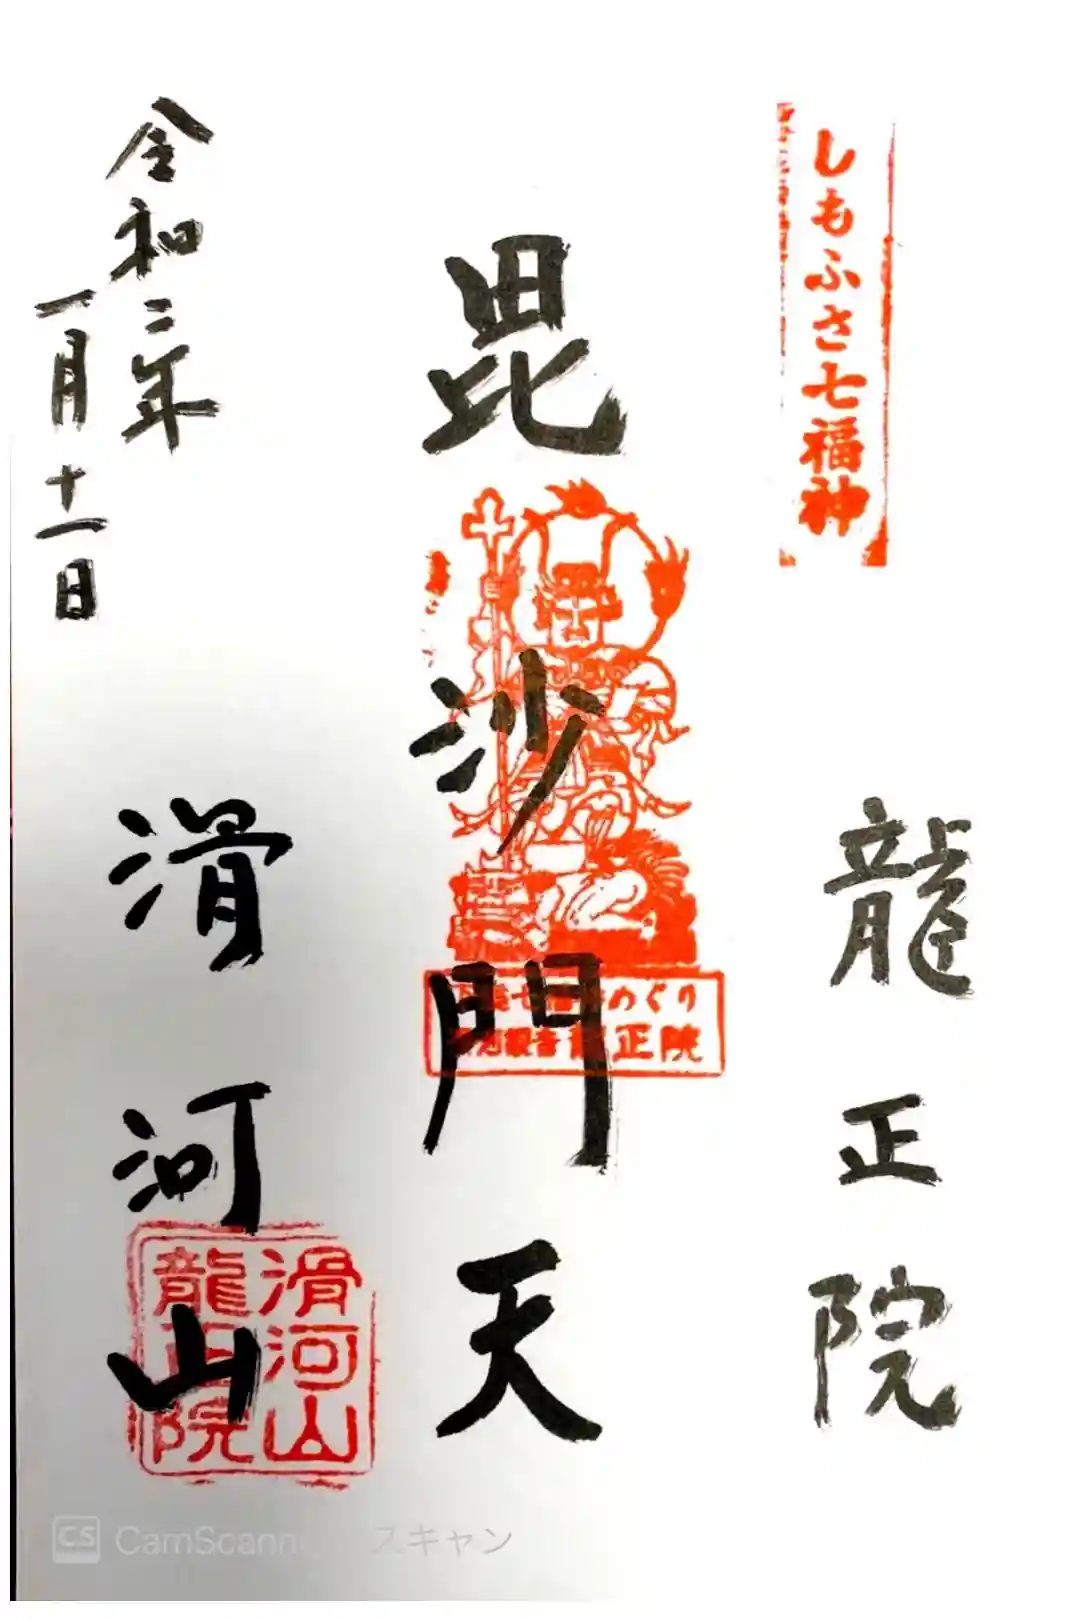 しもふさ七福神
龍正院
毘沙門天
下総七福神めぐり
滑河観音龍正院
滑河山
滑河山
龍正院
令和二年
一月十一日
CS CamScanner スキャン